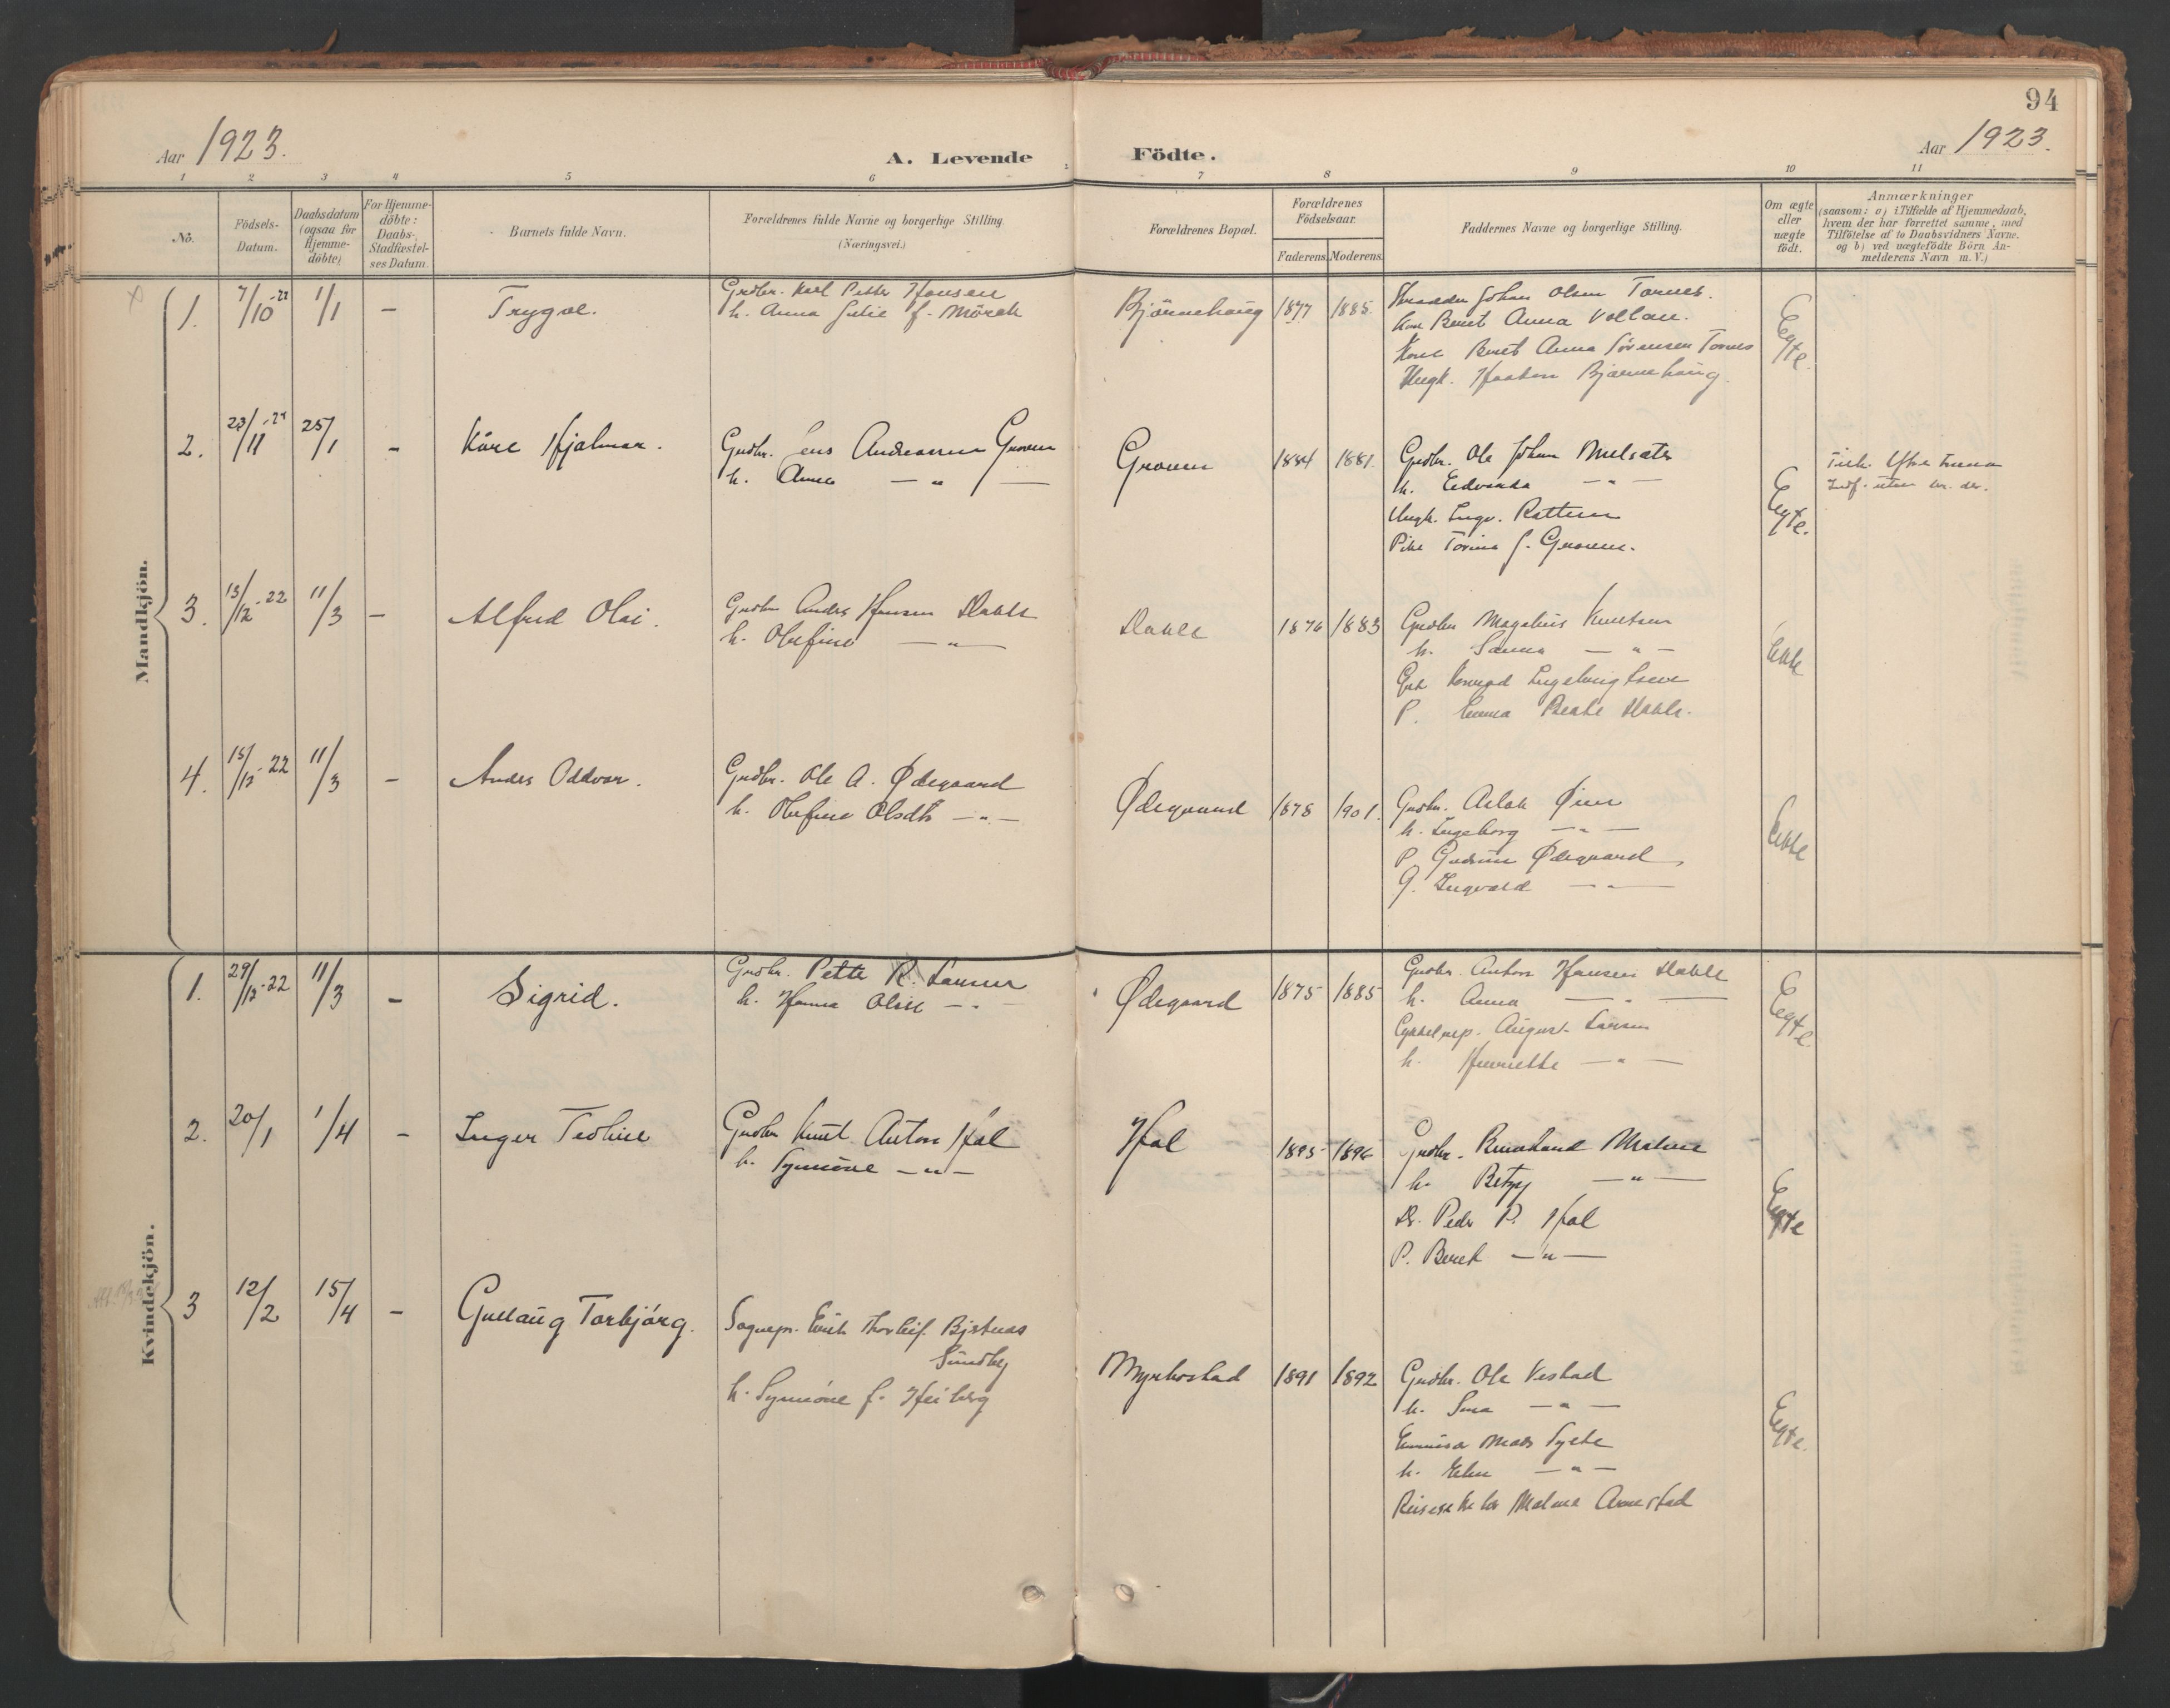 94
Aar 1923.
A. Levende Födte.
Aar 1923.
1 2 3 4 5 6 7 8 9 10 11
No.
Födsels-Datum.
Daabsdatum (ogsaa for Hjemme-döbte)
For Hjemme-döbte: Daabs-, Stadfæstel-ses Datum.
Barnets fulde Navn.
Forældrenes fulde Navne og borgerlige Stilling.
(Næringsvei.)
Forældrenes Bopæl.
Forældrenes Födselsaar.
Faderens. Moderens.
Faddernes Navne og borgerlige Stilling.
Om ægte eller uægte födt.
Anmærkninger
(saasom: a) i Tilfælde af Hjemmedaab,
hvem der har forrettet samme, med
Tilföielse af to Daabsvidners Navne.
og b) ved uægtefödte Börn An-
melderens Navn m. V.)
Mandkjön.
1. 7/10-22 1/1 - Trygve.
Grdbr. Karl Petter Hansen
h. Anna Julie f. Mörch
Bjørnehaug 1877 1885.
Johan Olsen Tornes.
Kone Beret Anna Vollan.
Kone Beret Anna Sörensen Tornes
Ungk. Haakon Bjørnehaug.
Egte.
2. 23/11-22 25/1 - Kåre Hjalmar.
Grdbr. Jens Andreassen Groven
h. Anna — " —
Groven 1884 1881.
Grdbr. Ole Johan Melsæter
h. Edvarda — " —
Ungk. Ingv. Rottem
Pike Torina J. Groven.
Egte.
3. 13/12-22 11/3 - Alfred Olai.
Grdbr Anders Hansen Hakle
h. Olufine — " —
1876 1883
Grdbr Magelius Knutsen
h. Sanna — " —
P. Emma Beate
Ekte
4. 15/12-22 11/3 - Anders Oddvar.
Grdbr. Ole A. Ødegaard
h. Olufine Olsdtr — " —
Ødegaard 1878 1901.
Grdbr. Aslak Øien
h. Ingeborg — " —
P. Gudrun Ødegaard
G. Ingvald — " —
Ekte
Kvindekjön.
1. 29/12-22 11/3 - Sigrid.
Grdbr. Petter R. Larsen
h. Hanna Olsen — " —
Ødegaard 1875 1885
Grdbr. Anton Hansen
h. Anna — " —
August Larsen
h. Henriette — " —
Egte.
2. 20/1 1/4 - Inger Teoline
Grdbr Knut Anton Hol
h. Synnöve — " —
Hol 1895 1896
Grdbr. Malme
h. Betzy — " —
Peder P. Hol
P. Beret — " —
Egte
3 12/2 15/4 - Gullaug Torbjörg.
Sognepr. Eirik Thorleif Bjertnæs
Sundby
h. Synnöve f. Heiberg
Myrbostad 1891 1892
Grdbr. Ole Vestad
h. — " —
Mads Sylte
h. — " —
Malme Arnestad
Egte.